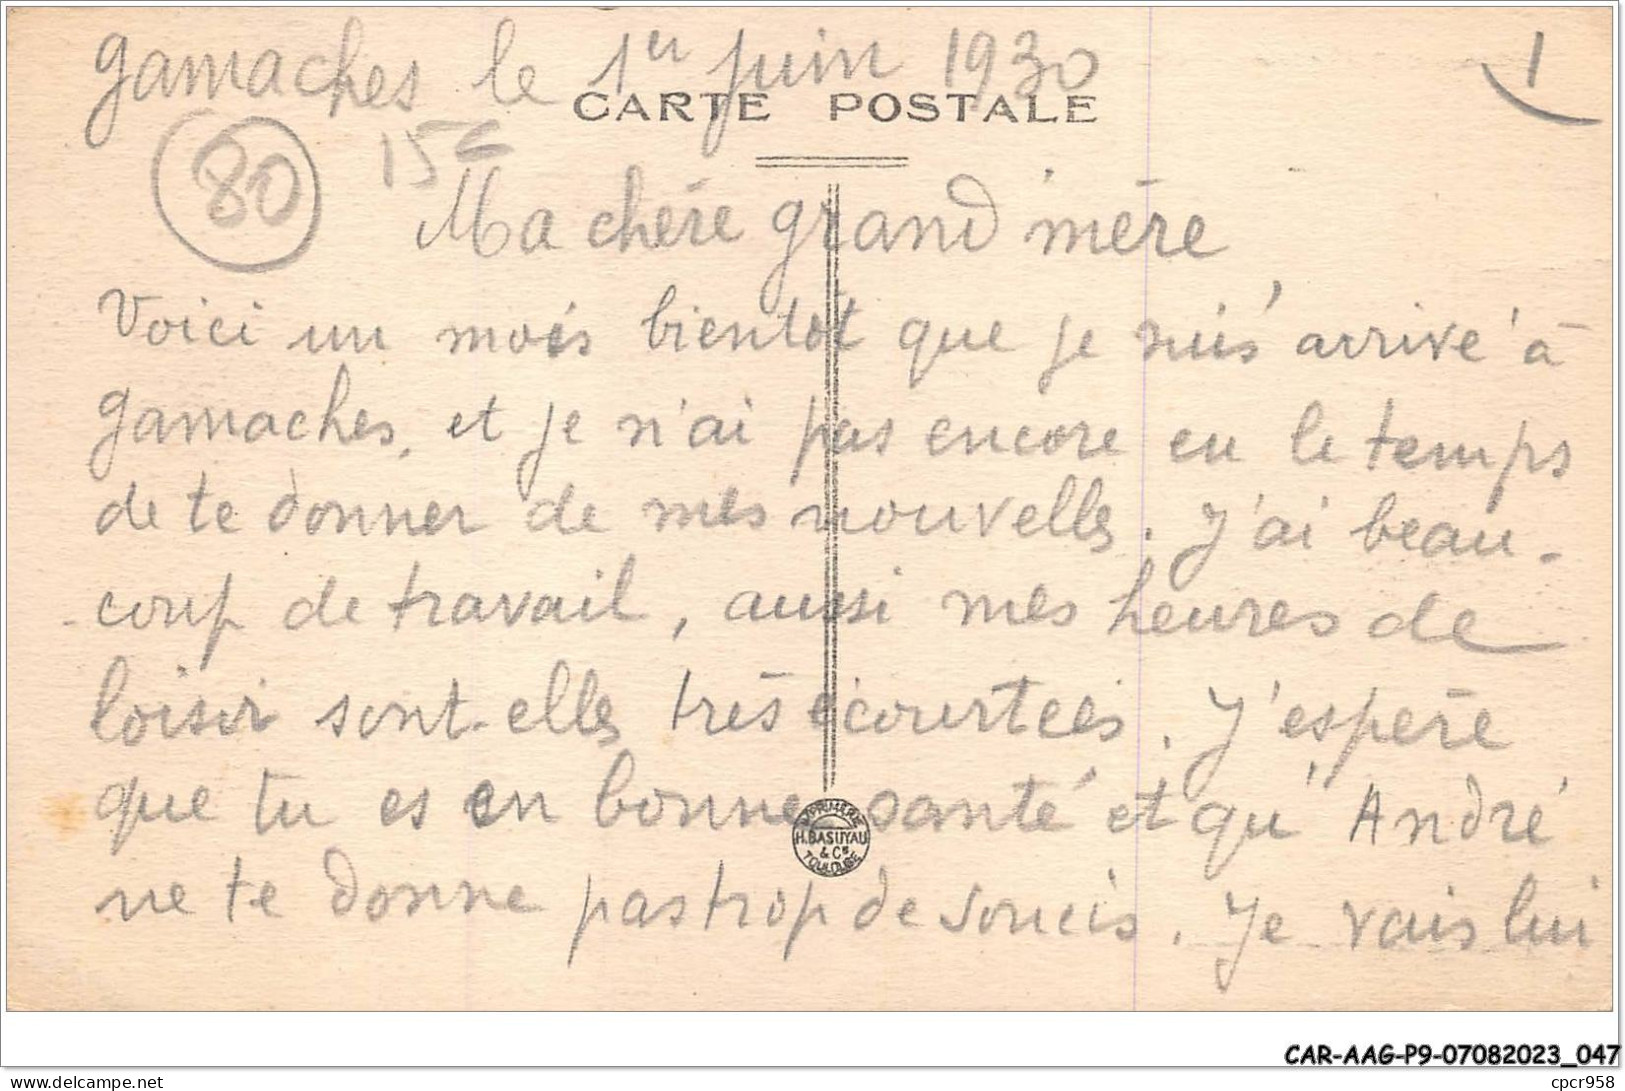 Gamaches le 1er juin 1930
1
CARTE POSTALE
80
15c
Ma chère grand'mère
Voici un mois bientôt que je suis arrivé à
Gamaches, et je n'ai pas encore eu le temps
de te donner de mes nouvelles. J'ai beau-
coup de travail, aussi mes heures de
loisir sont-elles très écourtées. J'espère
que tu es en bonne santé et qu'André
ne te donne pas trop de soucis. Je vais lui
IMPRIMERIE
H. BASUYAU
& Cie
TOULOUSE
CAR-AAG-P9-07082023_047
delcampe.net
cpcr958